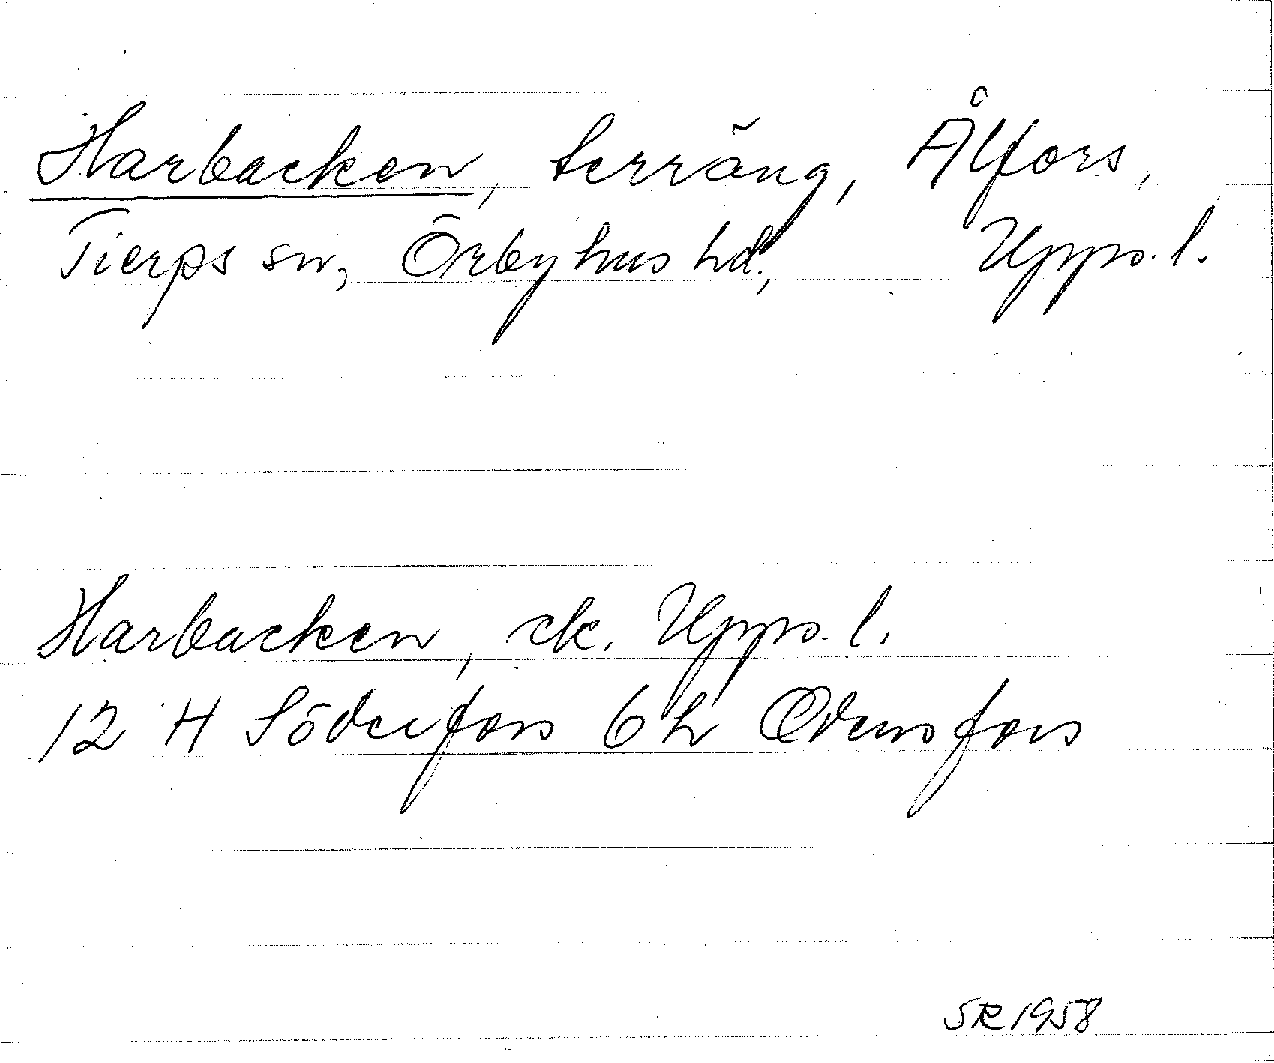 Harbacken, terräng, Ålfors,
Tierps sn, Örbyhus hd., Upps. l.
Harbacken, ek. Upps. l.
12 H Söderfors 6 h Odensfors
SR 1958